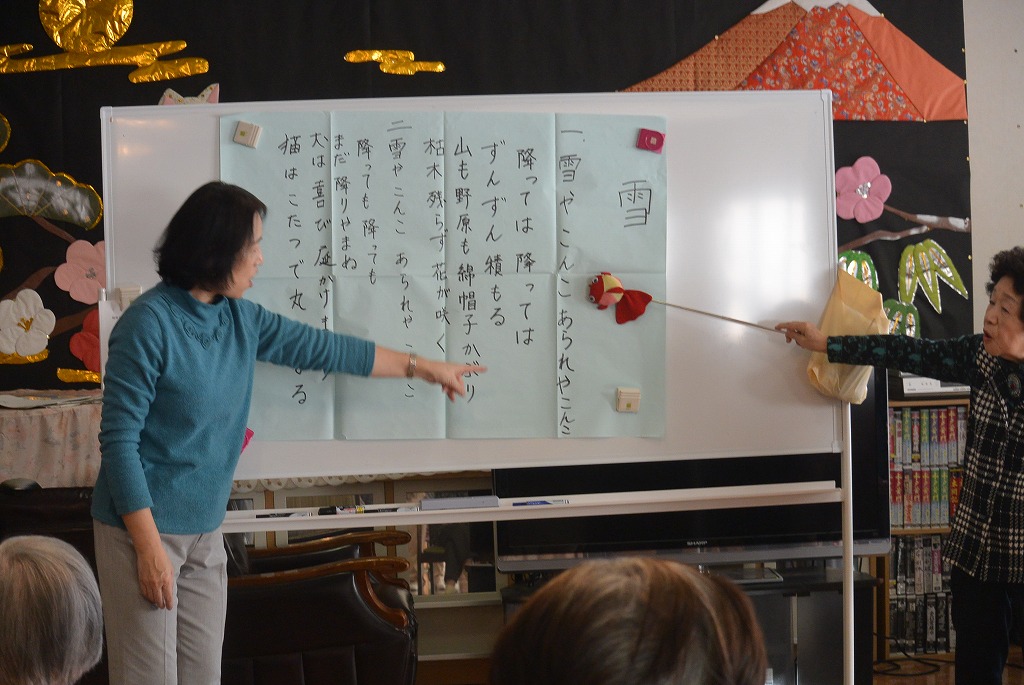 雪
一、雪やこんこ あられやこんこ
降っては 降っては
ずんずん積もる
山も野原も綿帽子かぶり
枯木残らず 花が咲く
二雪やこんこ あられやこんこ
降っても降っても
まだ降りやまぬ
犬は喜び 庭かけま
猫はこたつで丸 なる
SHARP